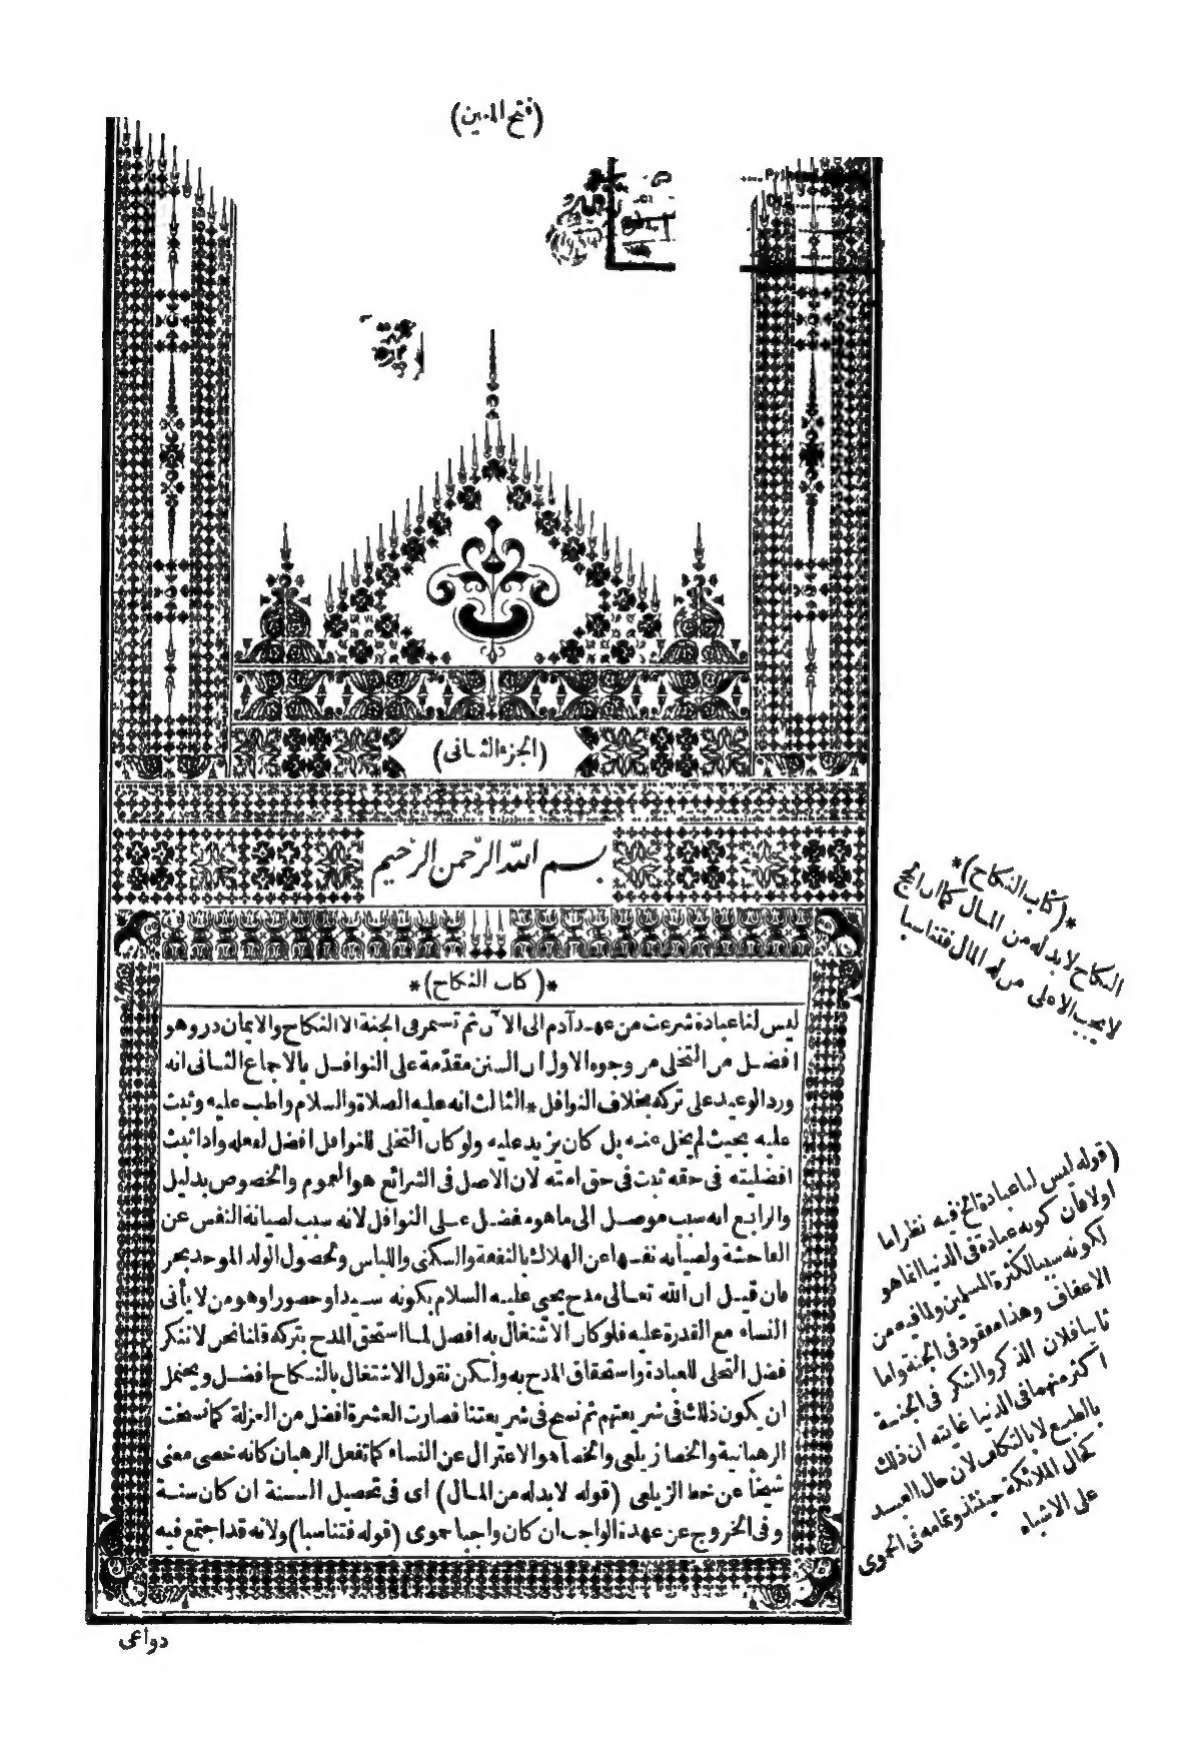 (فتح المعين)
(الجزء الثانى)
بسم الله الرحمن الرحيم
*(كتاب النكاح)*
ليس لنا عبادة شرعت من عهد آدم الى الآن ثم تستمر فى الجنة الا النكاح والايمان در وهو
افضل من التخلى من وجوه الاول ان السنن مقدمة على النوافل بالاجماع الثانى انه
ورد الوعيد على تركه بخلاف النوافل * الثالث انه عليه الصلاة والسلام واظب عليه وثبت
عليه بحيث لم يخل عنه بل كان يزيد عليه ولو كان التخلى للنوافل افضل لفعله واذا ثبت
افضليته فى حقه ثبت فى حق امته لان الاصل فى الشرائع هو العموم والخصوص بدليل
والرابع انه سبب موصل الى ما هو مفضل على النوافل لانه سبب لصيانة النفس عن
الفاحشة ولصيانة نفسها عن الهلاك بالنفقة والسكنى واللباس ولحصول الولد الموحد بحر
فان قيل ان الله تعالى مدح يحيى عليه السلام بكونه سيدا وحصورا وهو من لا يأتى
النساء مع القدرة عليه فلو كان الاشتغال به افضل لما استحق المدح بتركه قلنا نحن لا ننكر
فضل التخلى للعبادة واستحقاق المدح به ولكن نقول الاشتغال بالنكاح افضل ويحتمل
ان يكون ذلك فى شريعتهم ثم نسخ فى شريعتنا فصارت العشرة افضل من العزلة كما نسخت
الرهبانية والخصا زيلعى والخصا هو الاعتزال عن النساء كما تفعل الرهبان كانه خصى معنى
شيخنا عن خط الزيلعى (قوله لا بد له من المال) اى فى تحصيل السنة ان كان سنة
وفى الخروج عن عهدة الواجب ان كان واجبا حموى (قوله فتناسبا) ولانه قد اجتمع فيه
دواعى
*(كتاب النكاح)*
النكاح لا بد له من المال كما ان الحج
لا يجب الا على من له المال فتناسبا
(قوله ليس لنا عبادة الخ فيه نظر اما
اولا فان كونه عبادة فى الدنيا انما هو
لكونه سببا لكثرة المسلمين ولما فيه من
الاعفاف وهذا مفقود فى الجنة واما
ثانيا فلان الذكر والشكر فى الجنة
اكثر منهما فى الدنيا غايته ان ذلك
بالطبع لا بالتكلف لان حال العبد
كحال الملائكة حينئذ وتمامه فى الحموى
على الاشباه